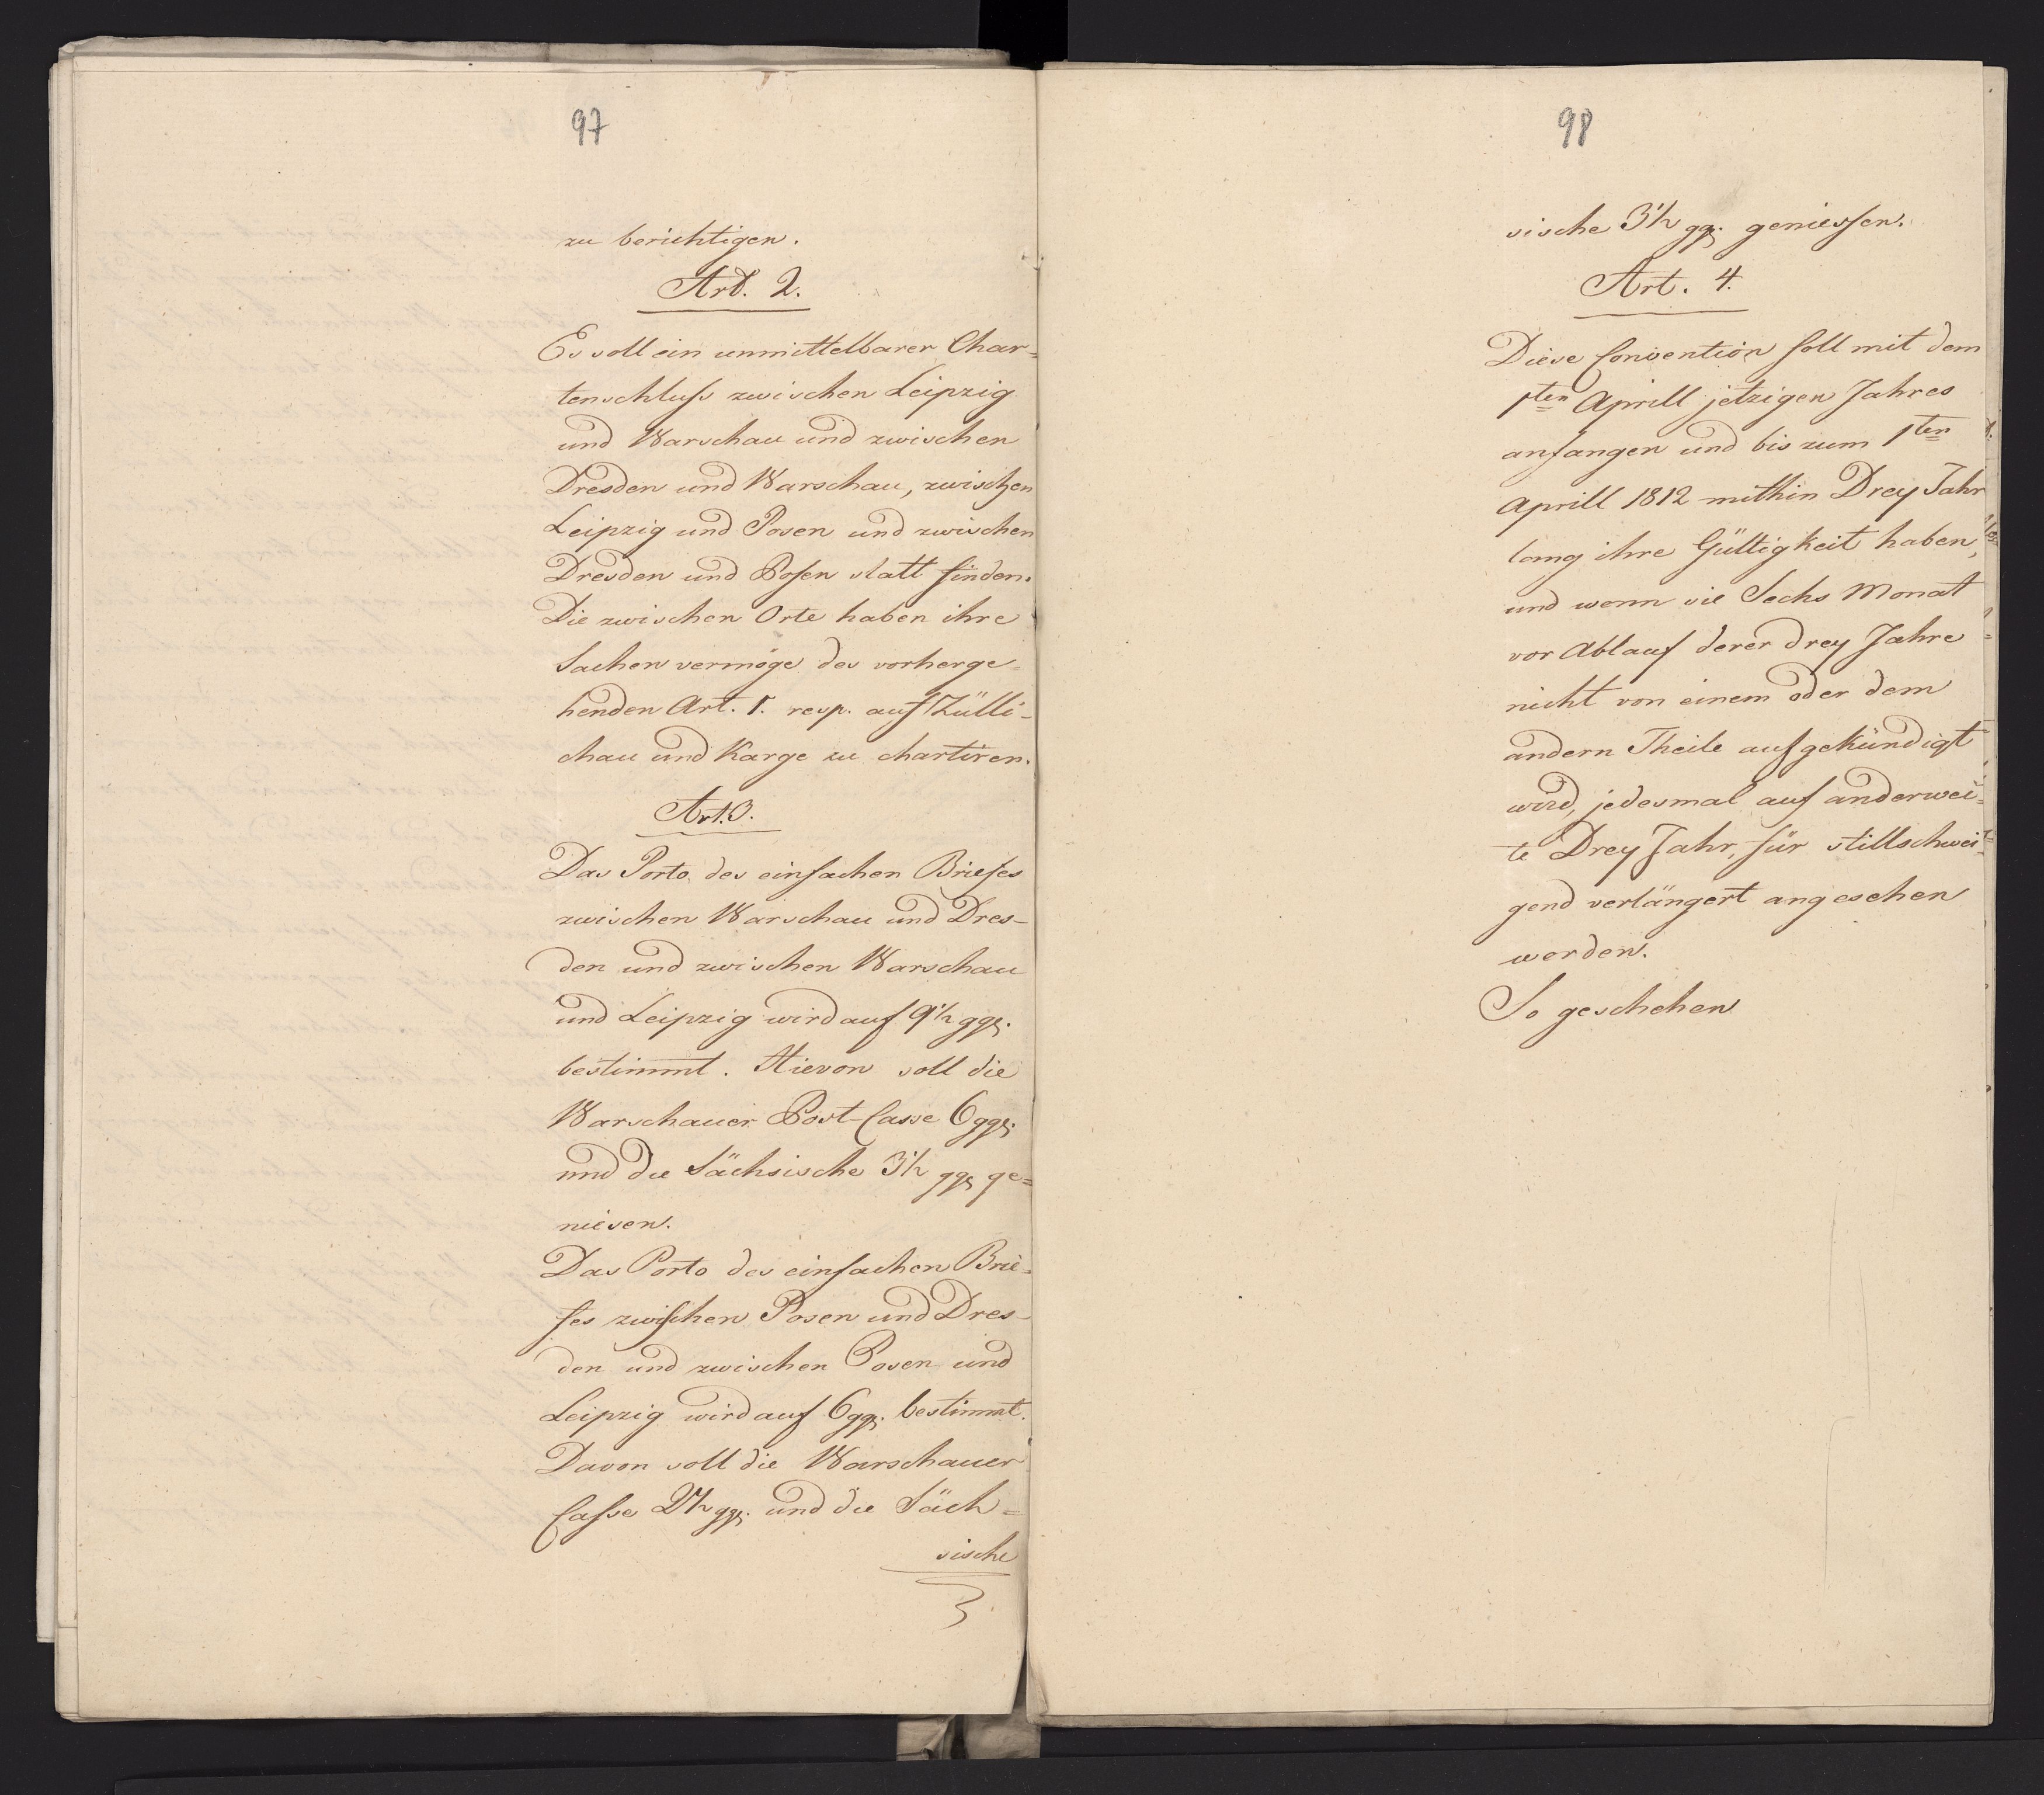 97
zu berichtigen.
Art. 2.
Es soll ein unmittelbarer Char=
tenschluss zwischen Leipzig
und Warschau und zwischen
Dresden und Warschau, zwischen
Leipzig und Posen und zwischen
Dresden und Posen statt finden.
Die zwischen Orte haben ihre
Sachen vermöge des vorherge=
henden Art. 1. resp. auf Zülli-
chau und Karge zu chartiren.
Art. 3.
Das Porto des einfachen Briefes
zwischen Warschau und Dres-
den und zwischen Warschau
und Leipzig wird auf 9½ ggr.
bestimmt. Hievon soll die
Warschauer Post-Casse 6 ggr.
und die Sächsische 3½ ggr ge=
niesen.
Das Porto des einfachen Brie=
fes zwischen Posen und Dres-
den und zwischen Posen und
Leipzig wird auf 6 ggr. bestimmt.
Davon soll die Warschauer
Casse 2½ ggr. und die Säch=
sische
98
sische 3½ ggr. geniessen.
Art. 4.
Diese Convention soll mit dem
1ten Aprill jetzigen Jahres
anfangen und bis zum 1ten
Aprill 1812 mithin Drey Jahr
lang ihre Gültigkeit haben,
und wenn sie Sechs Monat
vor Ablauf derer drey Jahre
nicht von einem oder dem
andern Theile aufgekündigt
wird, jedesmal auf anderwei=
te Drey Jahr, für stillschwei=
gend verlängert angesehen
werden.
So geschehen